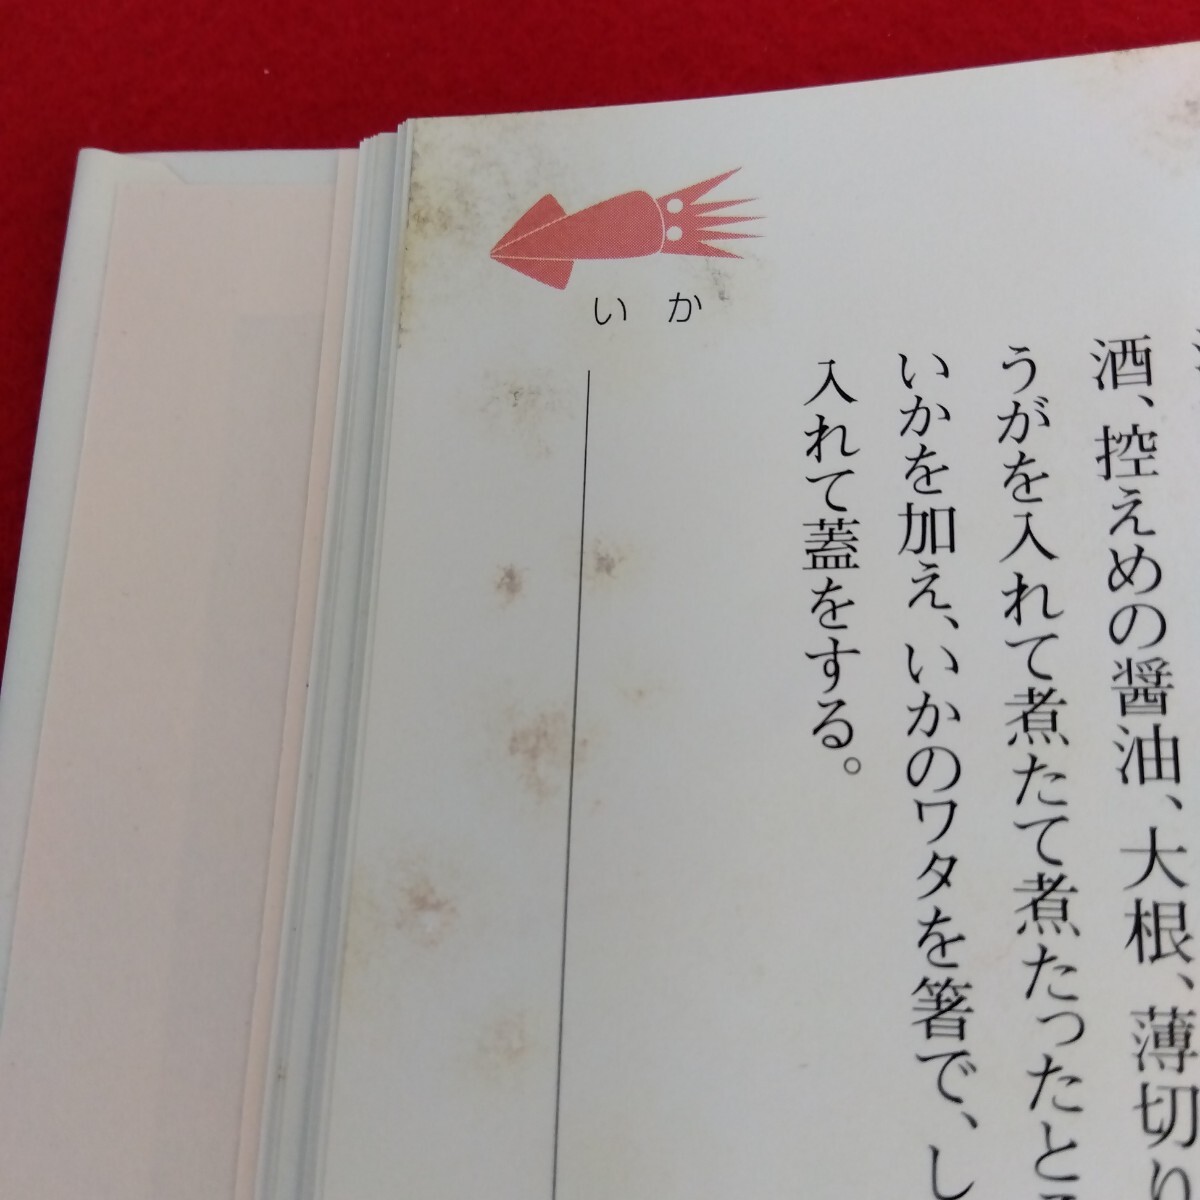 いか
酒、控えめの醤油、大根、薄切り
うがを入れて煮たて煮たったとこ
いかを加え、いかのワタを箸で、し
入れて蓋をする。